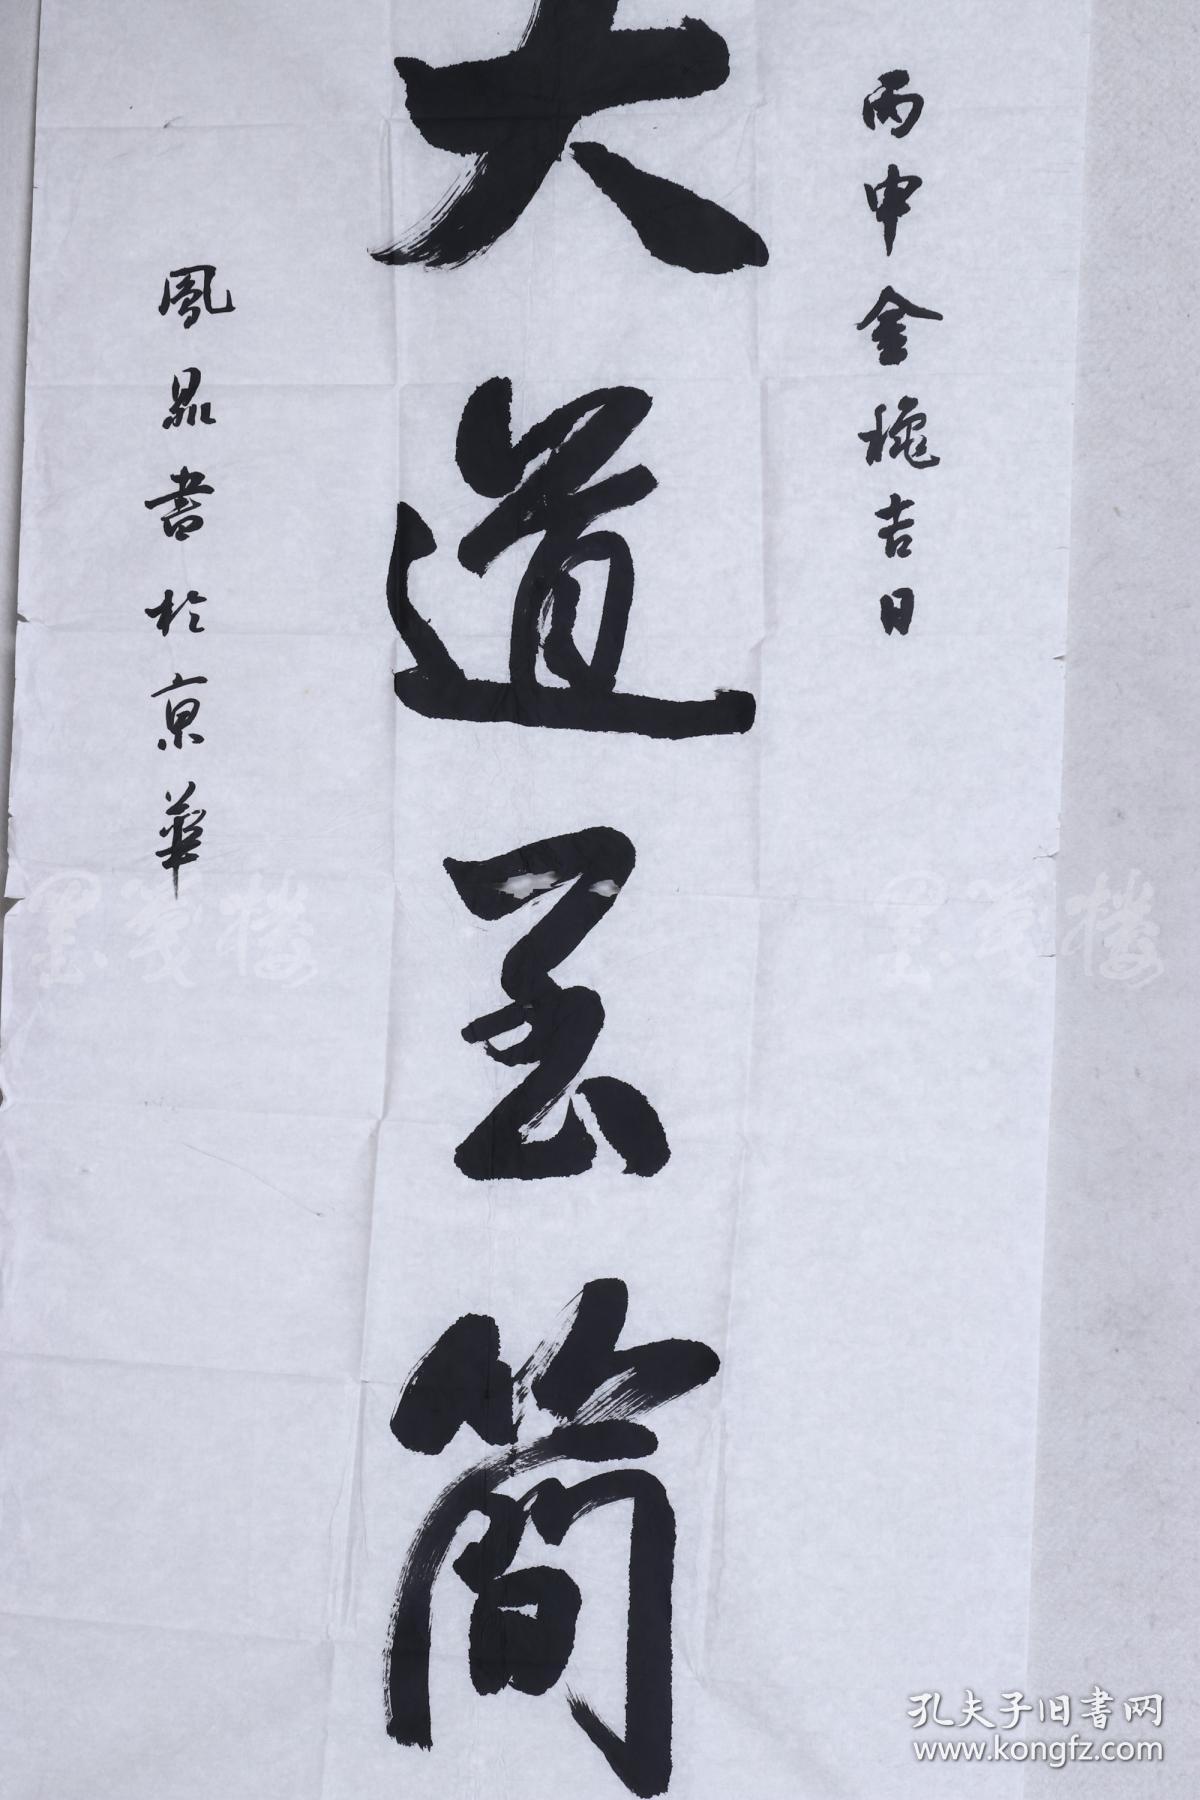 丙申金穐吉日
大道至簡
鳳鼎書於京華
墨笺楼
墨笺楼
孔夫子旧书网
www.kongfz.com